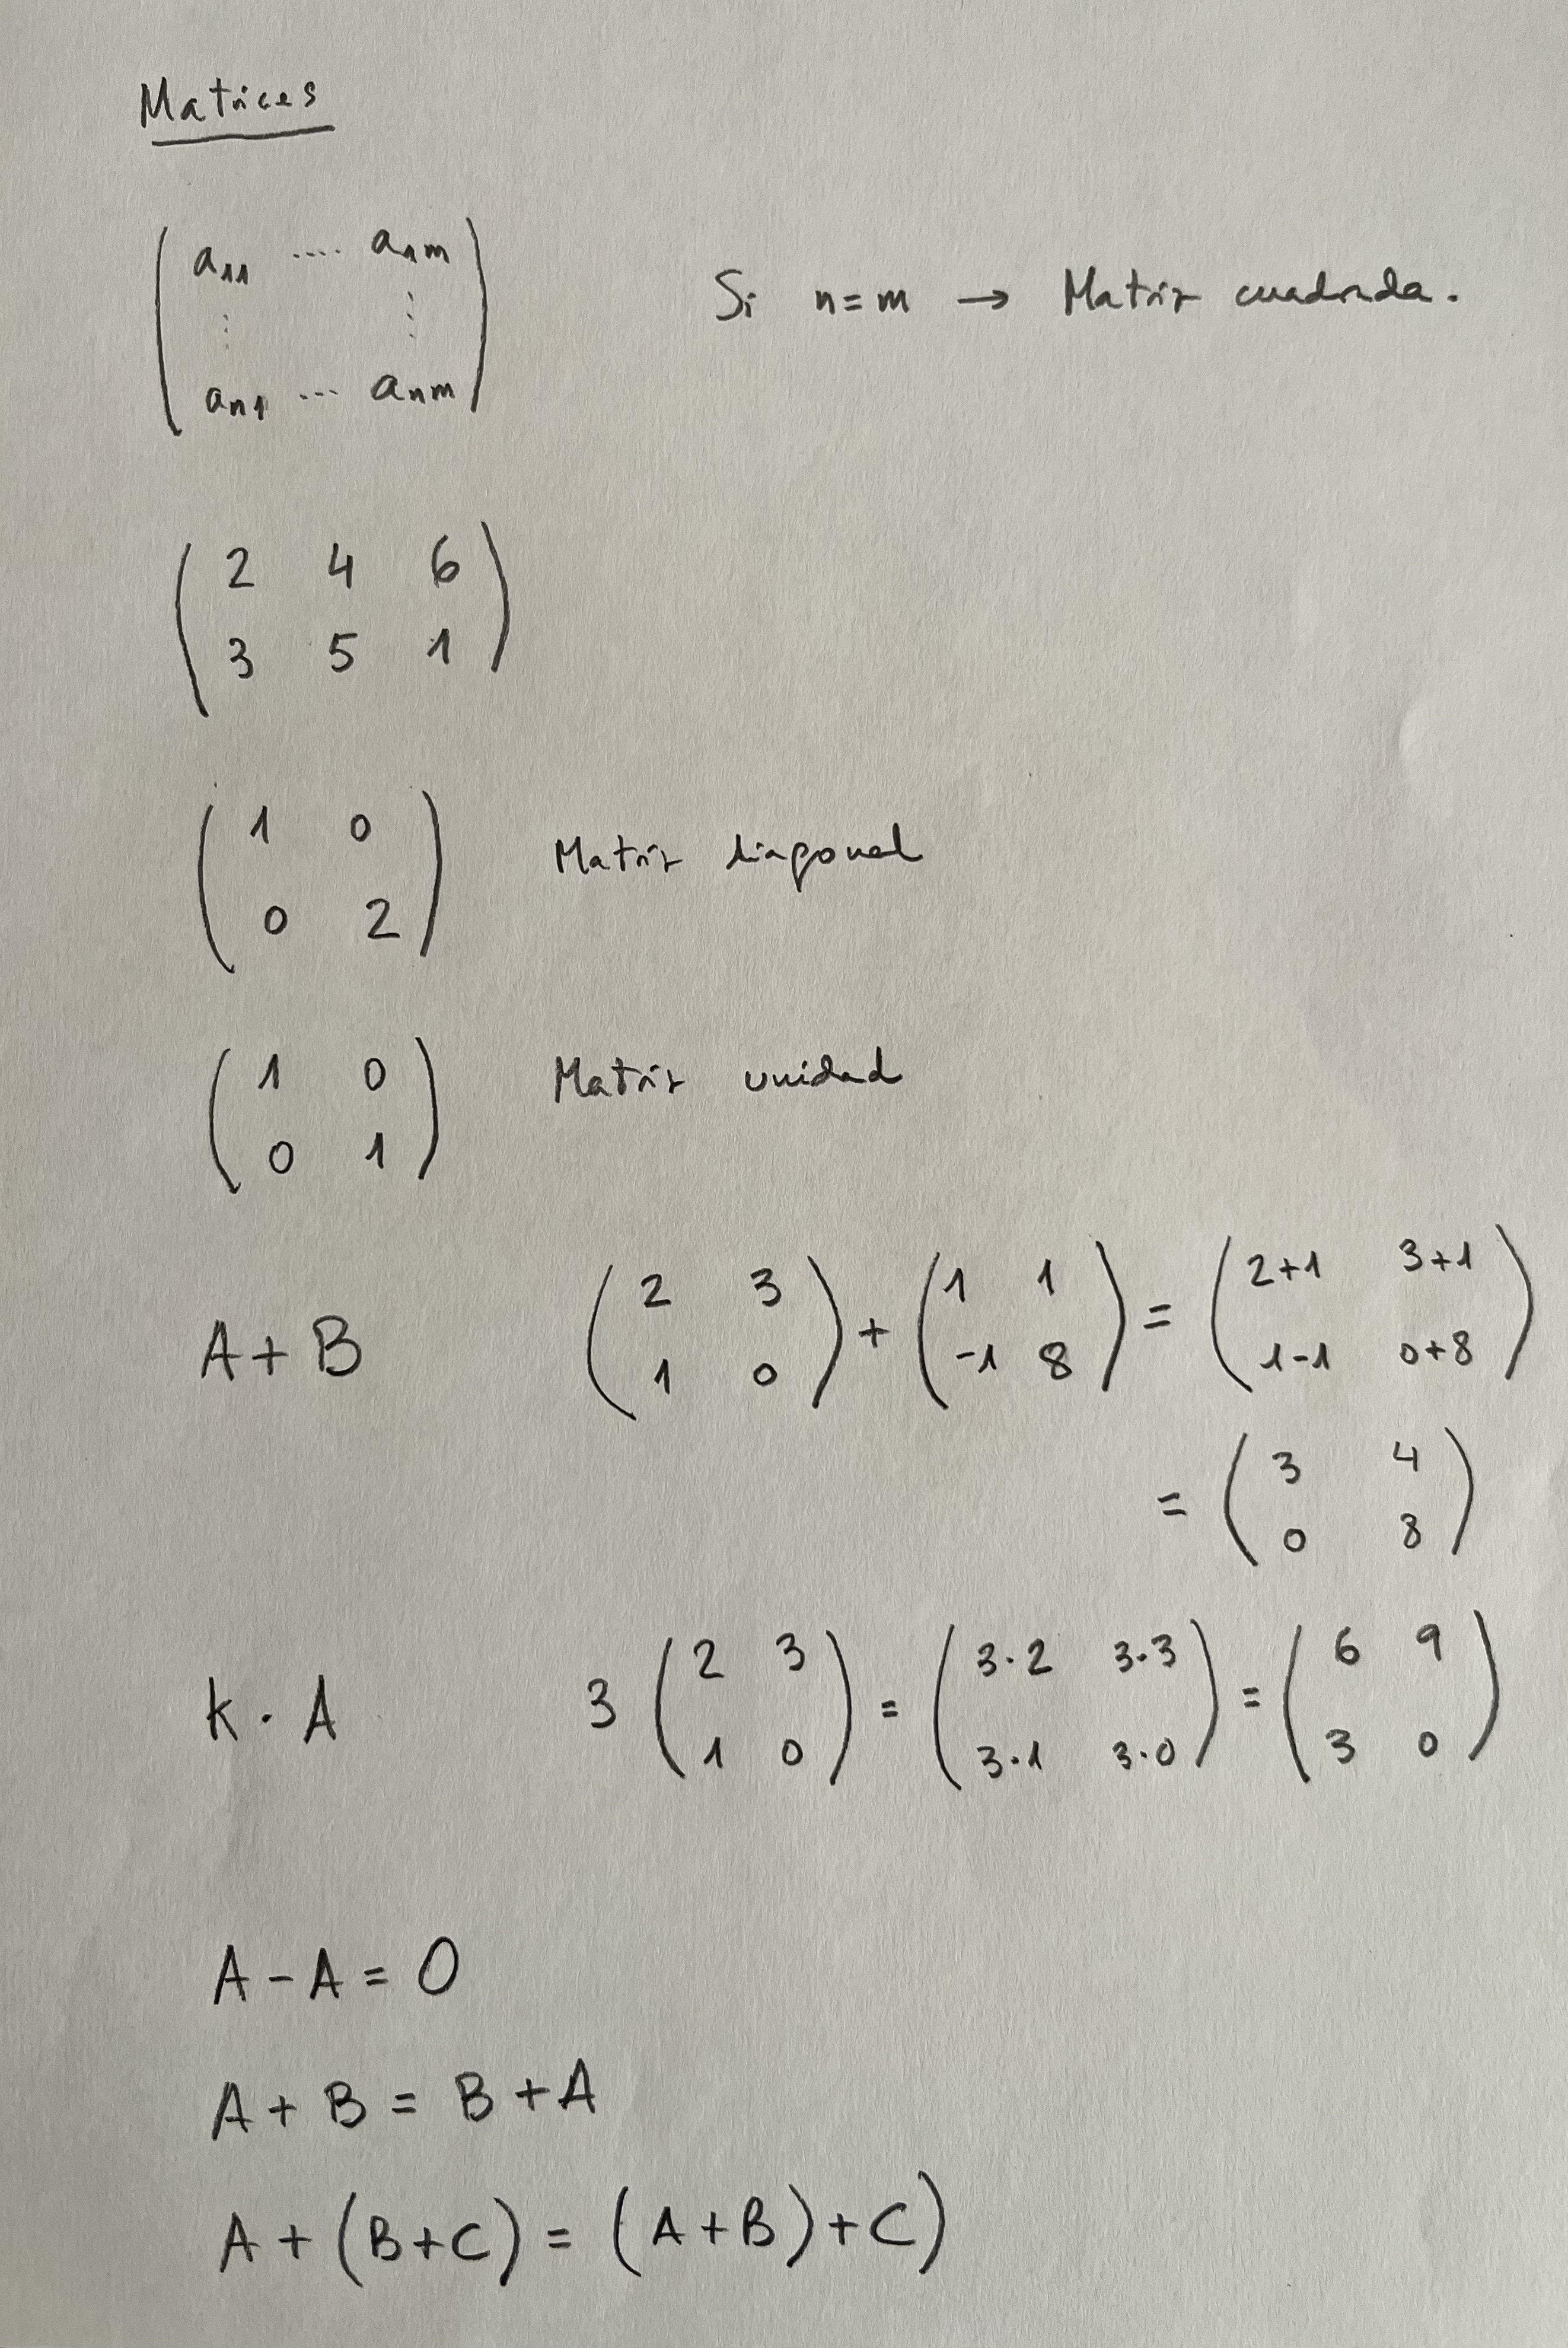 Matrices
( a₁₁ .... a₁ₘ )
( ⋮ ⋮ )
( aₙ₁ ... aₙₘ )
Si n=m → Matriz cuadrada.
( 2 4 6 )
( 3 5 1 )
( 1 0 )
( 0 2 )
Matriz diagonal
( 1 0 )
( 0 1 )
Matriz unidad
A+B
( 2 3 ) + ( 1 1 ) = ( 2+1 3+1 )
( 1 0 ) ( -1 8 ) ( 1-1 0+8 )
= ( 3 4 )
( 0 8 )
K · A
3 ( 2 3 ) = ( 3·2 3·3 ) = ( 6 9 )
( 1 0 ) ( 3·1 3·0 ) ( 3 0 )
A - A = 0
A + B = B + A
A + (B+C) = (A+B)+C)